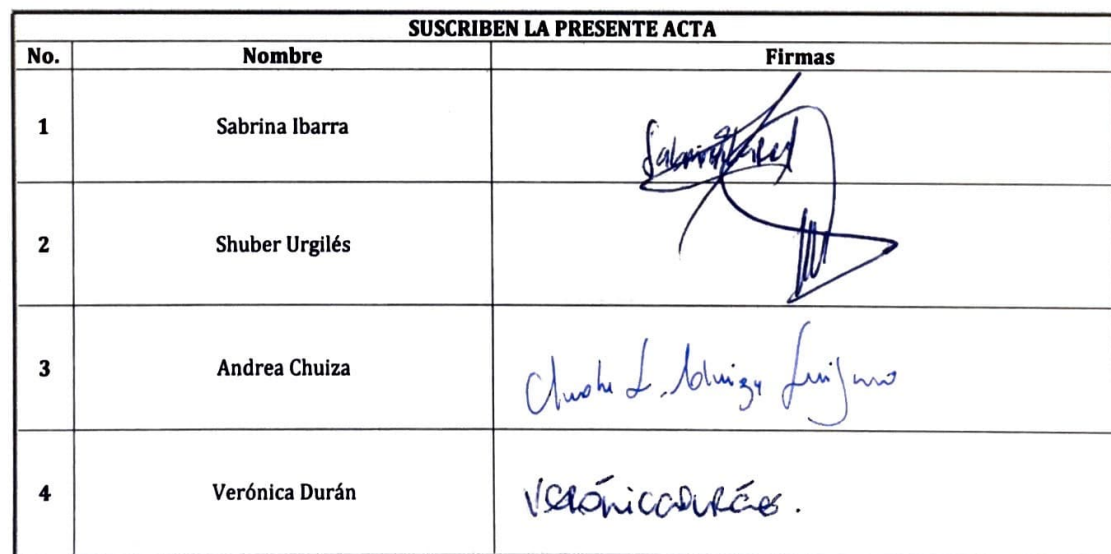 SUSCRIBEN LA PRESENTE ACTA
No. Nombre Firmas
1 Sabrina Ibarra
2 Shuber Urgilés
3 Andrea Chuiza
4 Verónica Durán